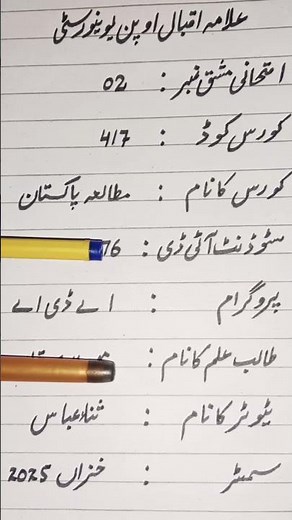 علامہ اقبال اوپن یونیورسٹی
امتحانی مشق نمبر : 02
کورس کوڈ : 417
کورس کا نام : مطالعہ پاکستان
سٹوڈنٹ آئی ڈی : 76
پروگرام : اے ڈی اے
طالب علم کا نام :
ٹیوٹر کا نام : ثناء عباس
سمسٹر : خزاں 2025